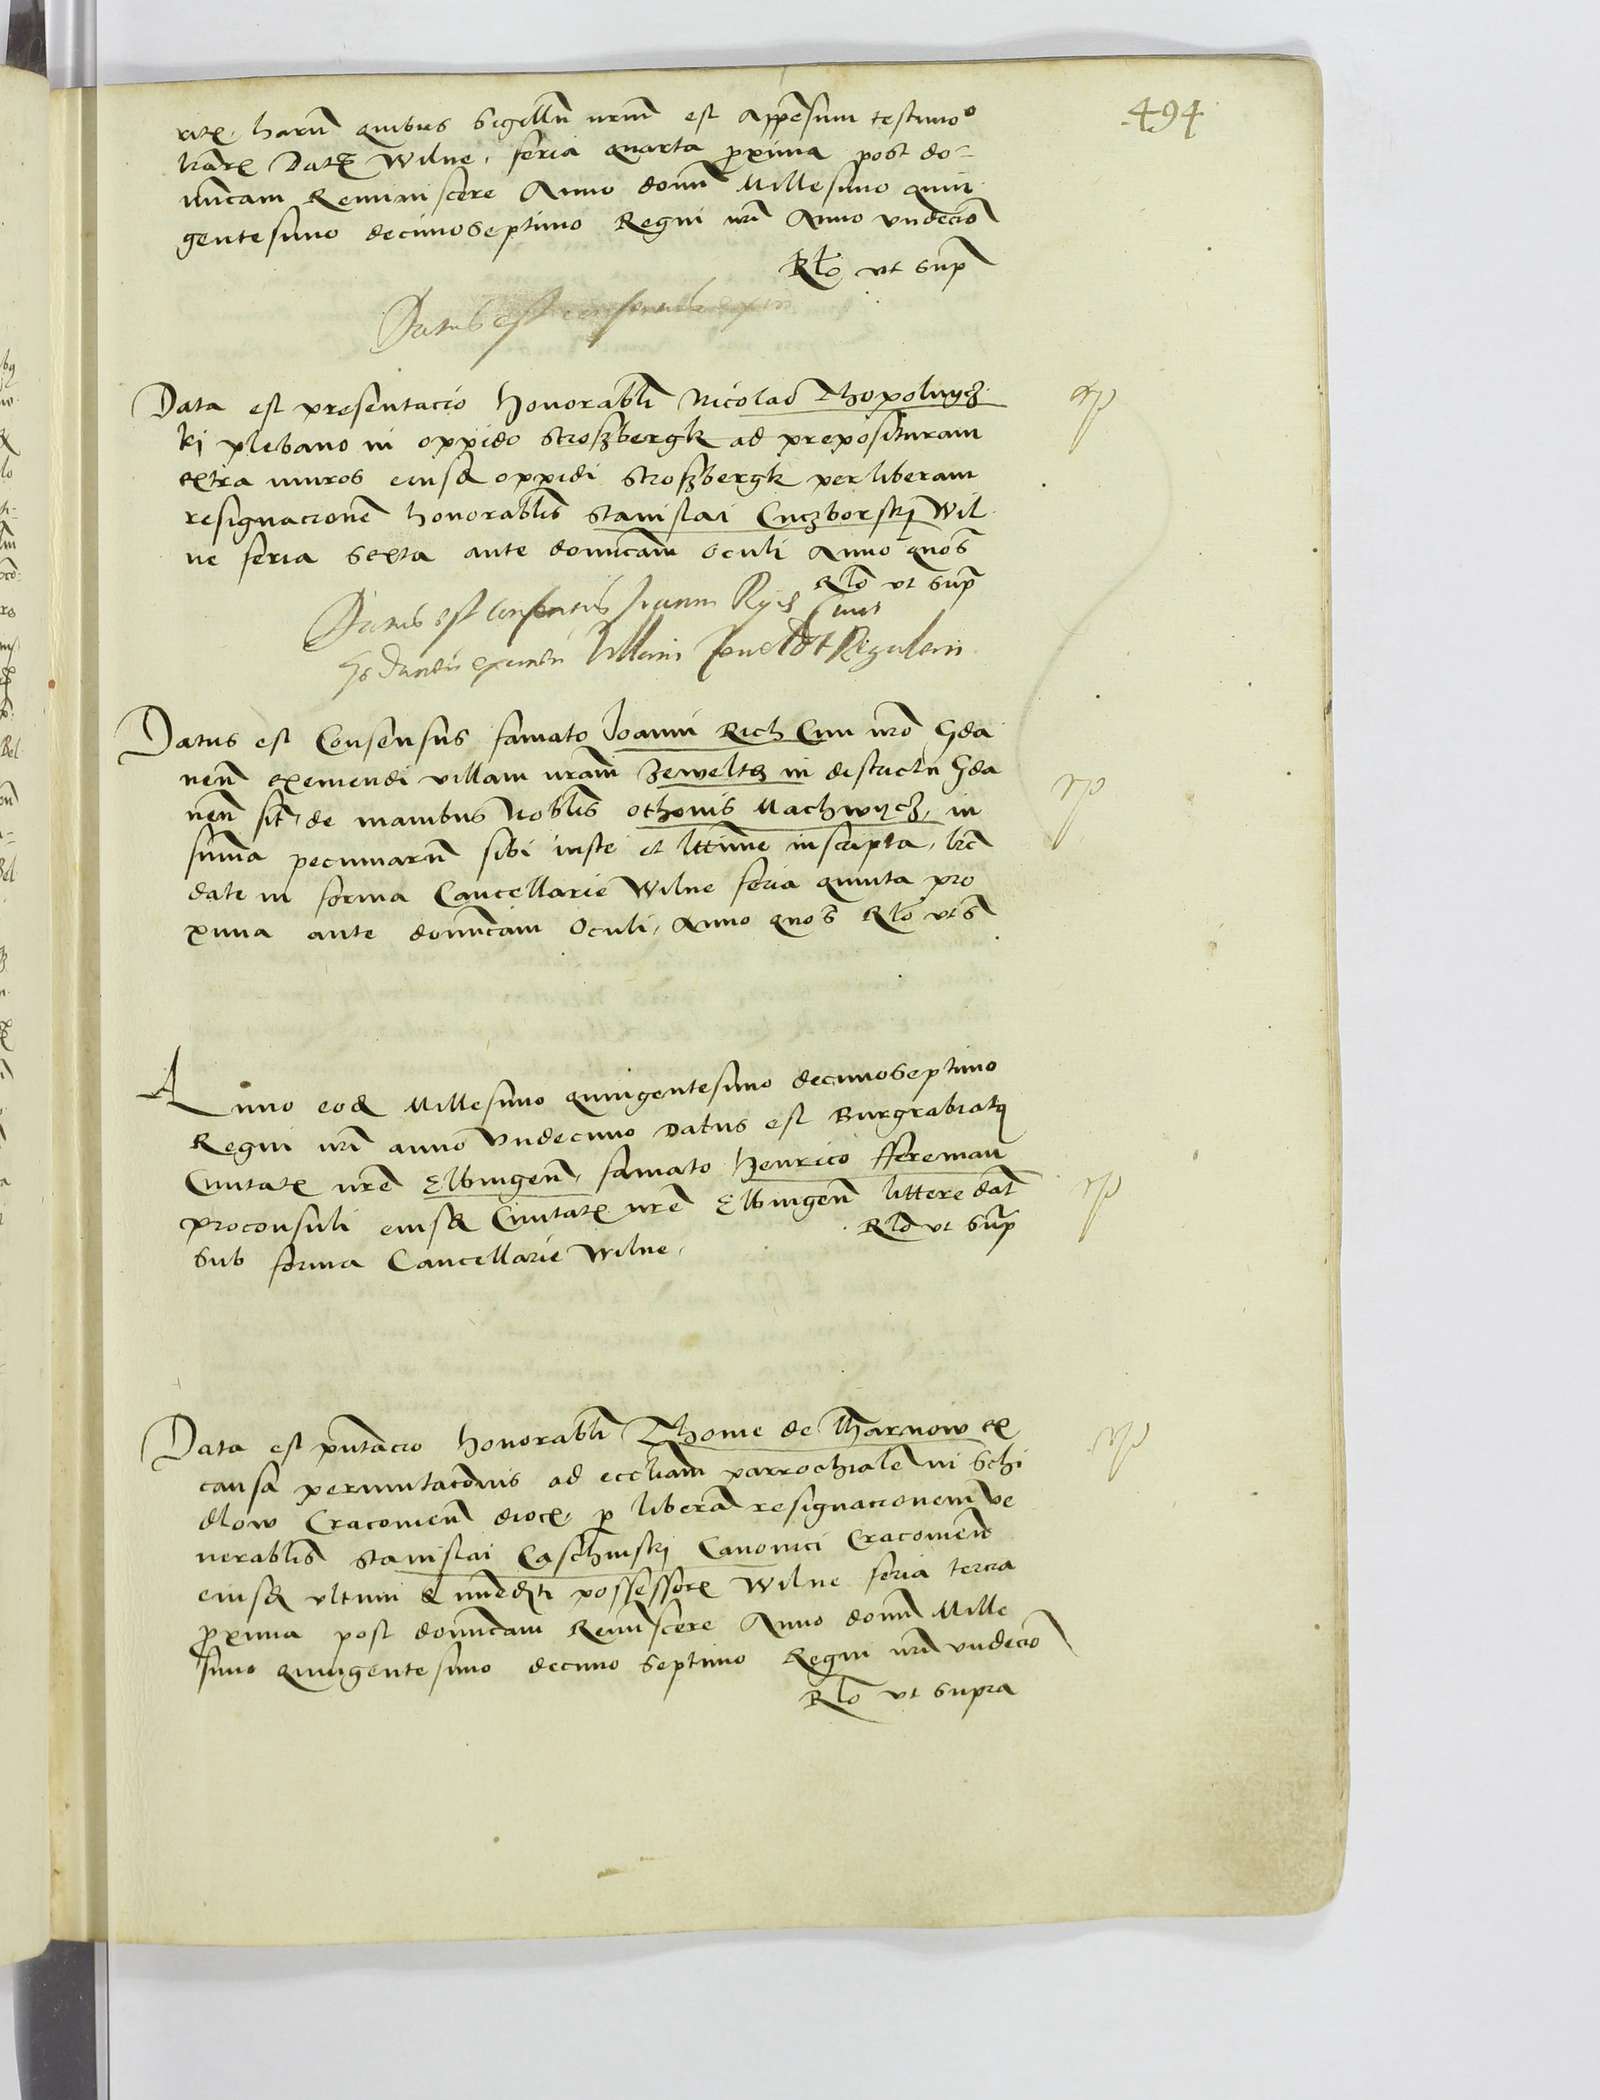 494
rite. harū quibus Sigillū nrūm est appēsum testimoº
liāre Dat Wilne, feria quarta ꝓxima post do-
mīcam Reminiscere Anno domī Millesimo quin
gentesimo decimoseptimo Regni nrī Anno vndecīo
Rlō vt supᷓ
Datus est consensus
Data est presentacio honorabli Nicolao Thopolnycz
kj plebano in oppido Stroszbergk ad preposituram
extra muros eiusd oppidi Stroszbergk per liberam
resignacionē honorablīs Stanislai Cuczborskj Wil
ne feria sexta ante domīcam Oculi Anno quo s̄
Rlō vt supᷓ
Datus est consensus Joanni Rych Civi
Gedanēn eximēn villam Sewelth Regalem
Datus est Consensus famato Joanni Rich Civi nrō Gda
nen̄ exemendi villam nrām Zewelth in districtu Gda
nen̄ sit̄, de manibus noblīs Othonis Machwycz, in
sum̄a pecuniarū sibi iuste et lttime inscripta, lrē
date in forma Cancellarie Wilne feria quinta pro
xima ante domīcam Oculi, Anno quo s̄ Rlō vt s̄
Anno eod Millesimo quingentesimo decimoseptimo
Regni nrī anno Vndecimo Datus est Burgrabiatq
Civitat nrē Elbingen̄, famato Henrico ffereman
proconsuli eiusd Civitat nrē Elbingen̄ littere dat
sub forma Cancellarie Wilne,
Rlō vt supᷓ
Data est pn̄tacio honorabli Thome de Tharnow ex
causa permutacōnis ad eccliam parrochialē in Schi
dlow Cracouien̄ dioc, ꝑ liberā resignacionem ve
nerablīs Stanislai Caschinskj Canonici Cracouien̄
eiusd vltimi & īmedti possessor Wilne feria tercia
ꝓxima post domīcam Remīscere Anno domī Mille
simo quingentesimo decimo septimo Regni nrī vndecīo
Rlō vt supra